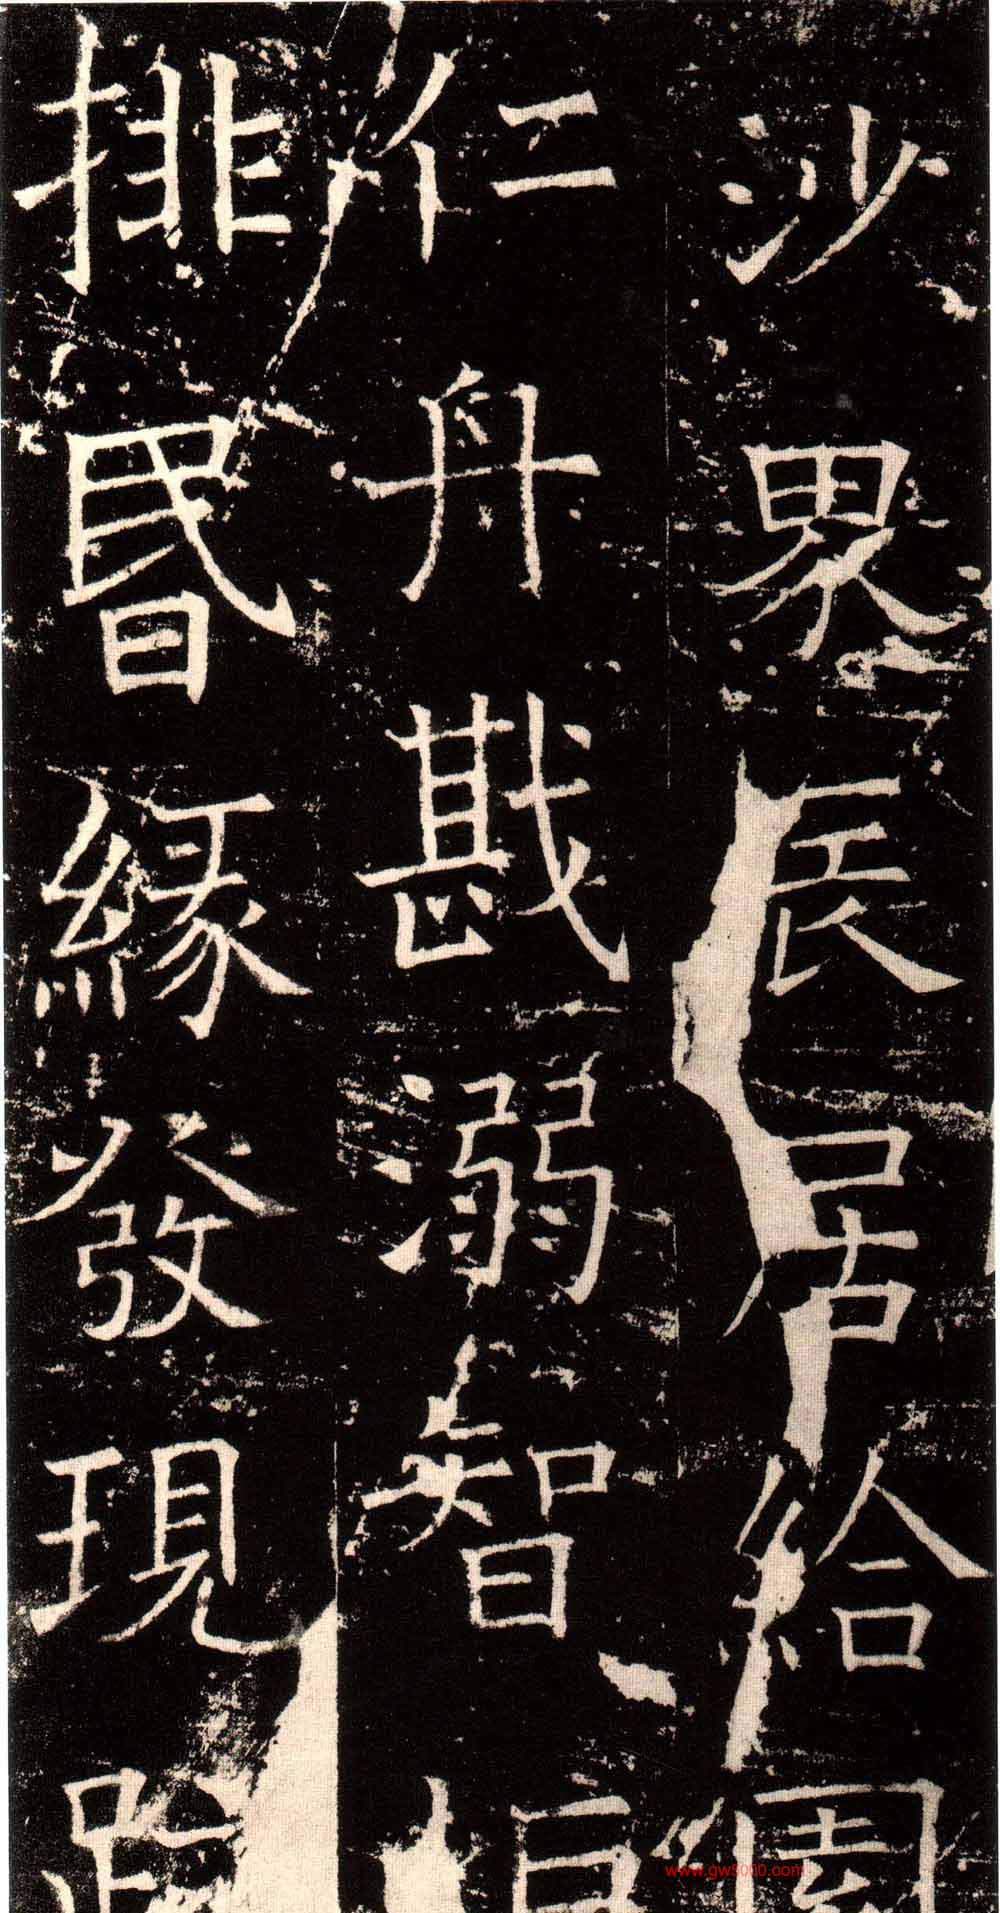 沙界辰居給園
仁舟戡溺智
排昬緣發現
www.gw8000.com